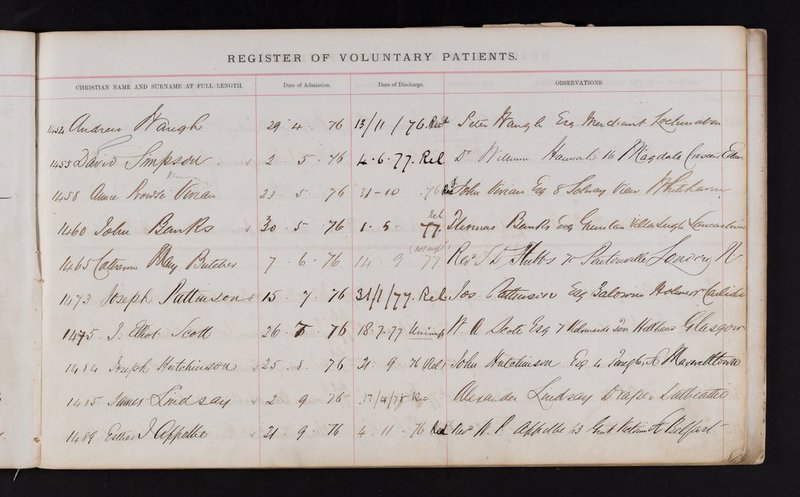 REGISTER OF VOLUNTARY PATIENTS.
CHRISTIAN NAME AND SURNAME AT FULL LENGTH. Date of Admission. Date of Discharge. OBSERVATIONS.
1454 Andrew Waugh 29 . 4 . 76 13/11/76. Peter Waugh Esq. Merchant
1455 David Simpson 2 . 5 . 76 4 . 6 . 77. Rel Dr William Hannah 16 Magdala Crescent Edinr
1458 Annie Vivian 23 . 5 . 76 31 - 10 . 76 John Vivian Esq 8 Solway View Whitehaven
1460 John Banks 30 . 5 . 76 1 . 5 . 77. Rel Thomas Banks Esq Villa Leigh Lancashire
1465 Catherine May Butcher 7 . 6 . 76 14 . 9 77 Revd Stubbs Pentonville London N
1473 Joseph Pattinson 15 . 7 . 76 31/1/77. Rel Jos Pattinson Esq Holmer Carlisle
1475. J. Elliot Scott 26 . 7 . 76 18.7.77 Unimp W. A Scott Esq 7 Glasgow
1484 Joseph Hutchinson 25 . 8 . 76 21 . 9 76 Rel John Hutchinson Esq 4 Maxwelltown
1485 James Lindsay 2 . 9 . 76 17/4/78 Rec Alexander Lindsay Draper Dalbeattie
1489 Esther J Appelbe 21 . 9 . 76 4 . 11 . 76 Revd W. P Appelbe 63 Gt Victoria St Belfast